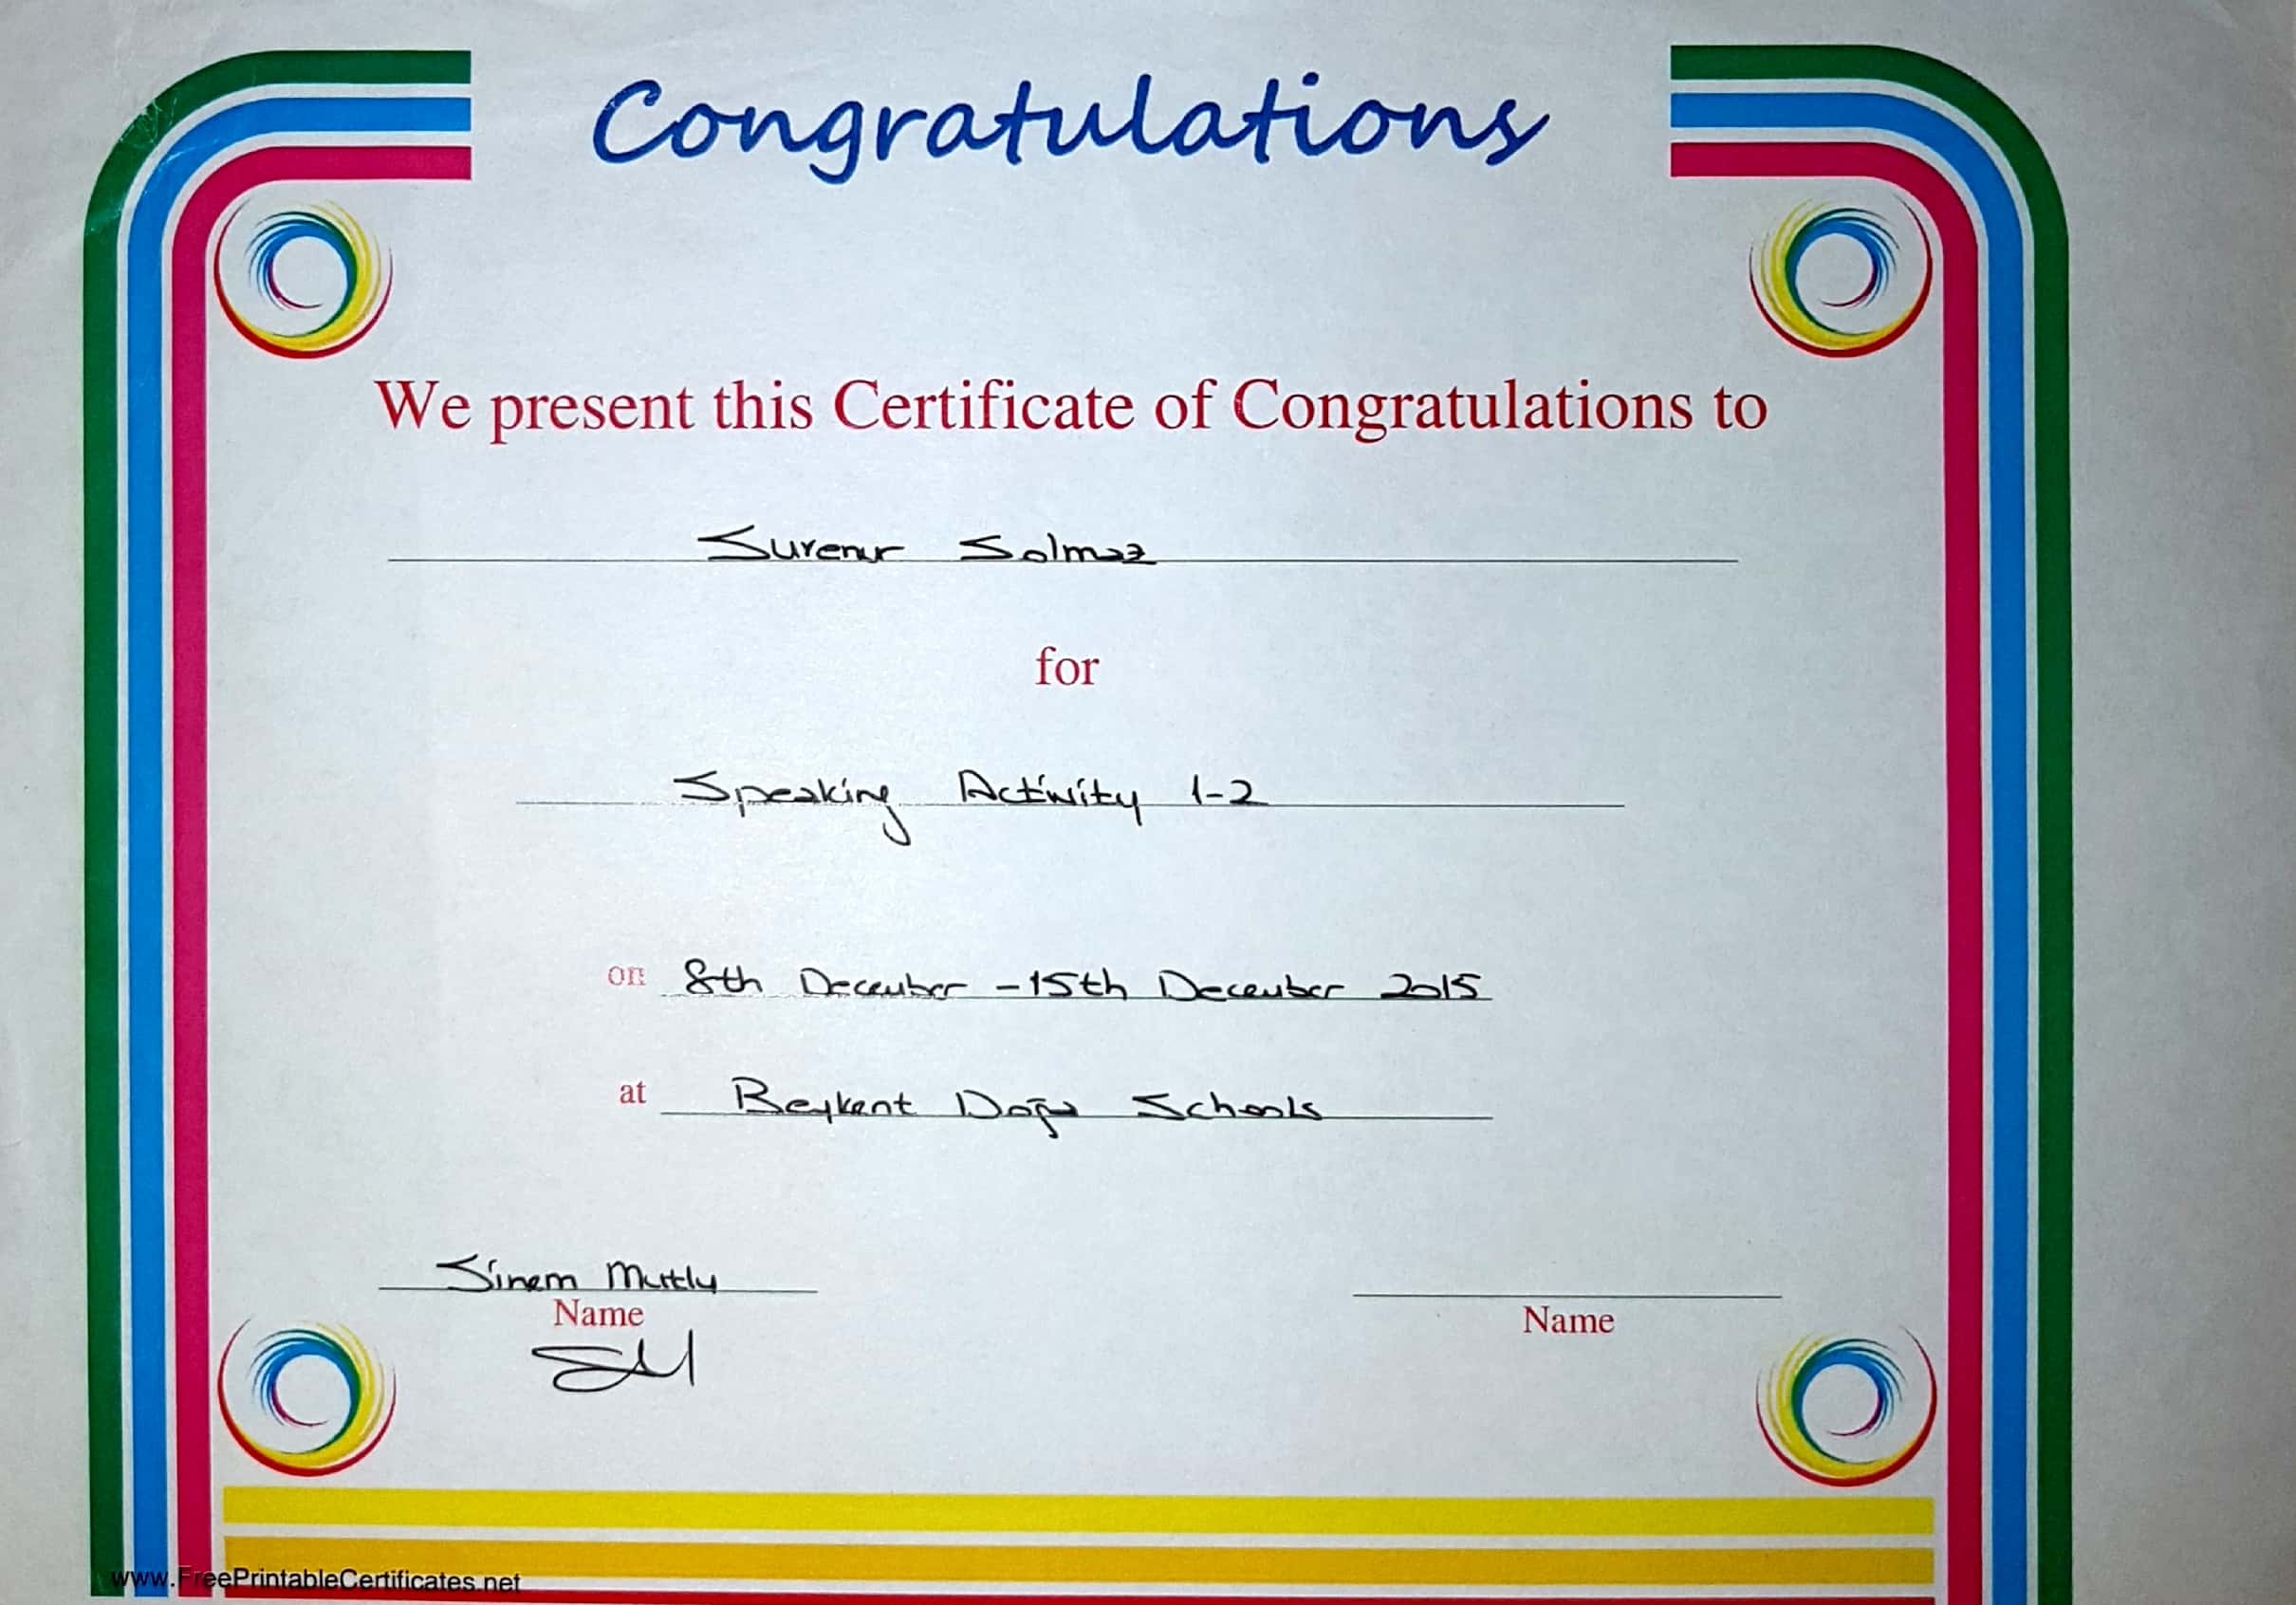 Congratulations
We present this Certificate of Congratulations to
Surenur Solmaz
for
Speaking Activity 1-2
on 8th December - 15th December 2015
at Beykent Doğa Schools
Sinem Mutlu
Name
Name
www.FreePrintableCertificates.net